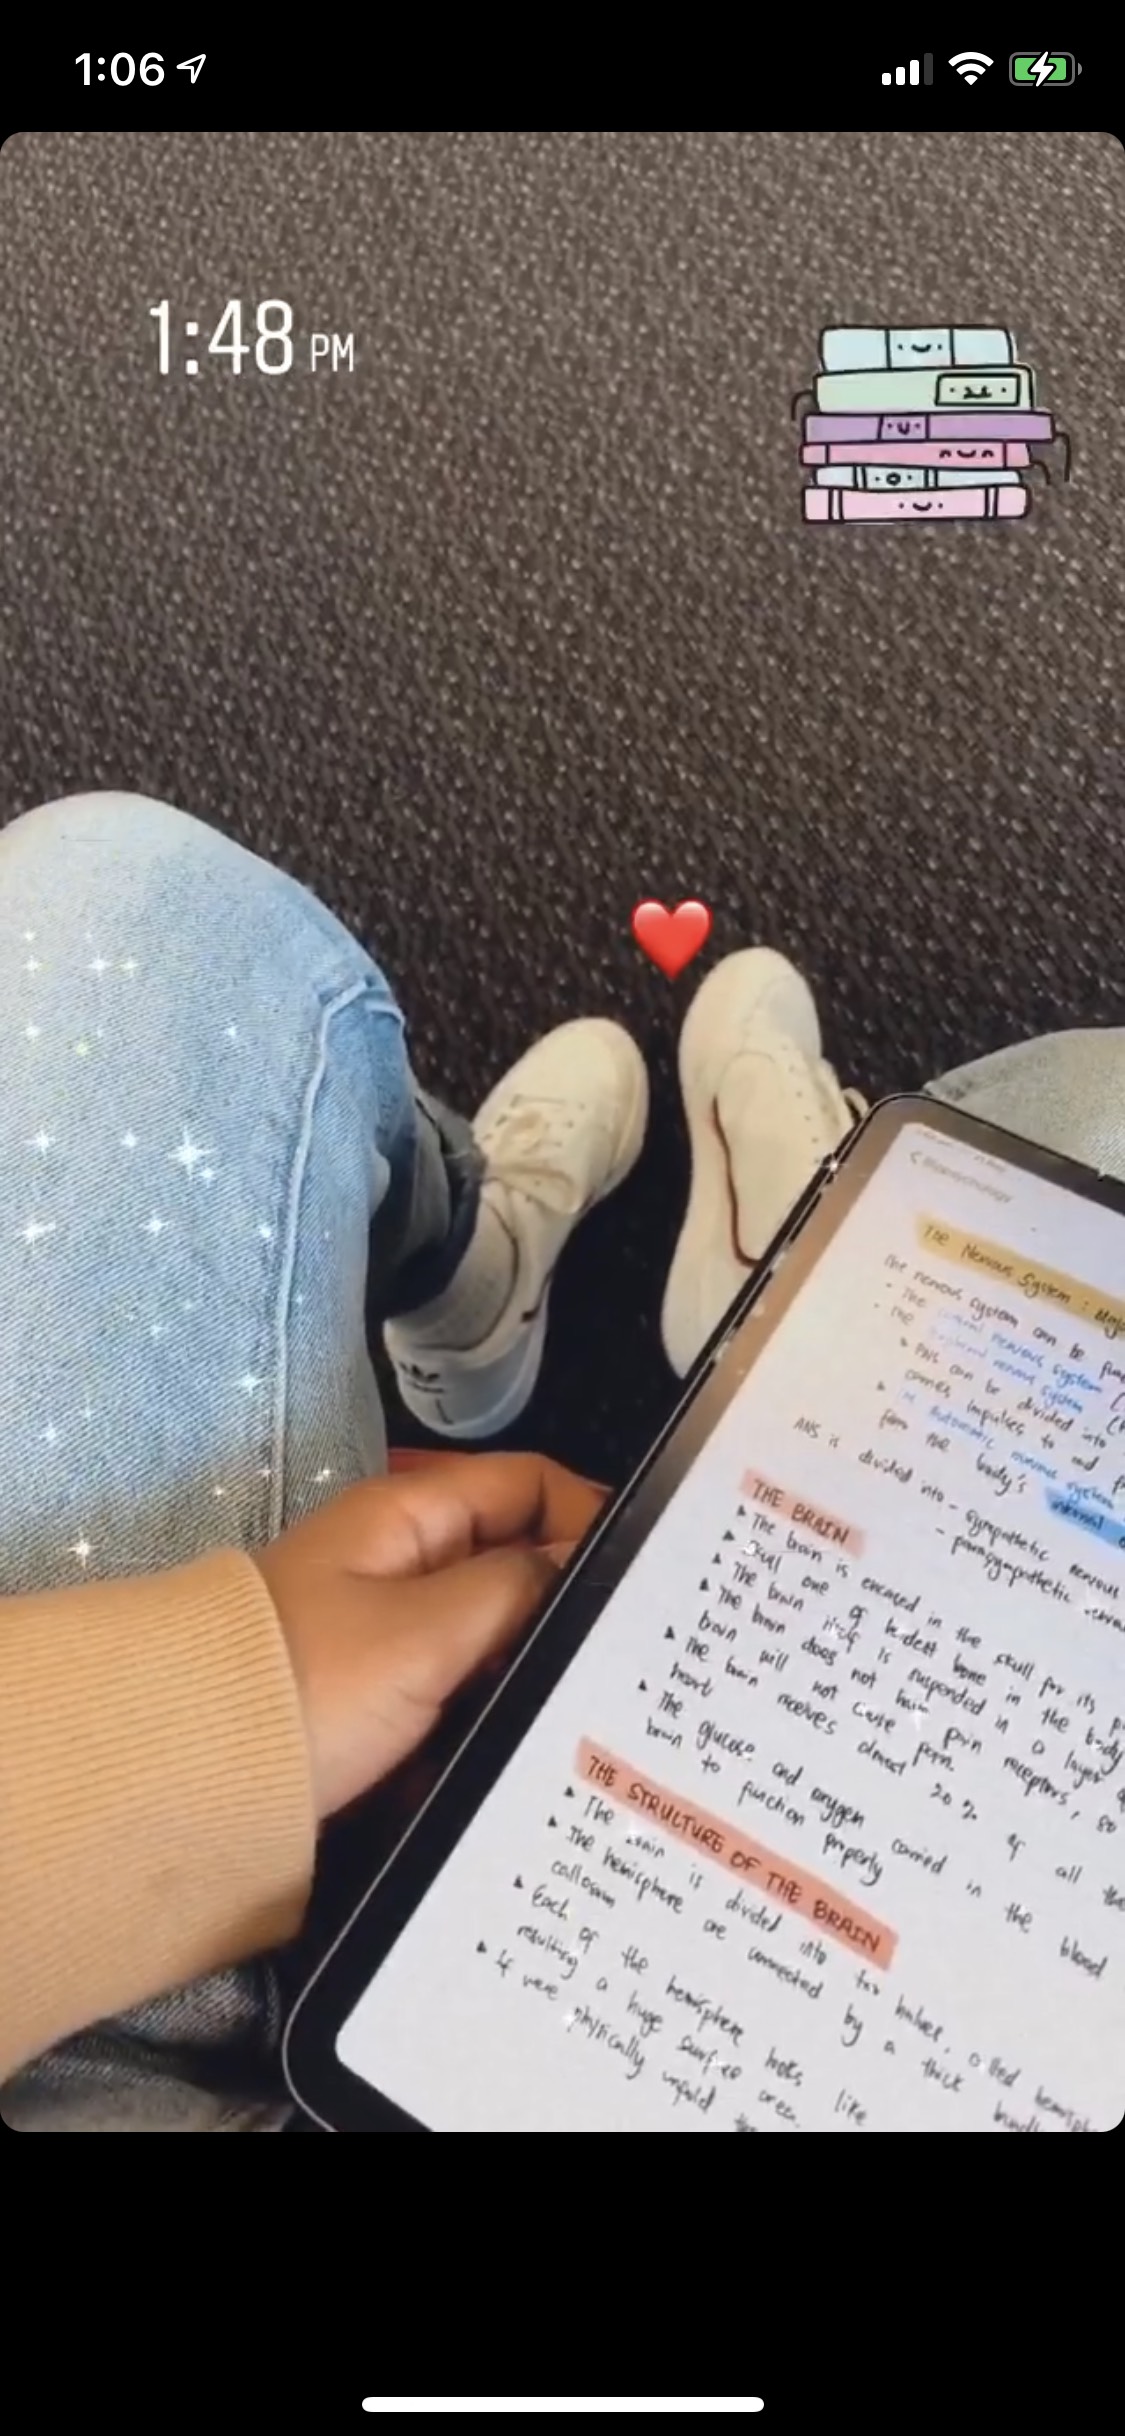 1:06
1:48 PM
< Biopsychology
The Nervous System : Majo
The nervous system can be func
- The central nervous system (
- The peripheral nervous system (P
▸ PNS can be divided into
carries impulses to and f
▸ autonomic nervous system
from the body's internal
ANS is divided into - sympathetic nervous
- parasympathetic nervou
THE BRAIN
▸ The brain is encased in the skull for its p
▸ Skull one of hardest bone in the body
▸ The brain itself is suspended in a layer of
▸ The brain does not have pain receptors, so
brain will not cause pain.
▸ The brain receives almost 20% of all the
heart
▸ The glucose and oxygen carried in the blood
brain to function properly
THE STRUCTURE OF THE BRAIN
▸ The brain is divided into two halves, called hemisph
▸ The hemisphere are connected by a thick bundl
callosum
▸ Each of the hemisphere looks like
resulting a huge surface area.
▸ If were physically unfold the